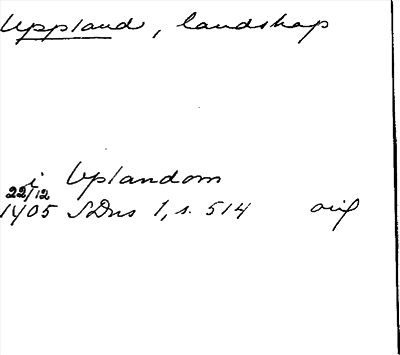 Uppland, landskap
i Uplandom
22/12
1405 SDns 1, s. 514 orig